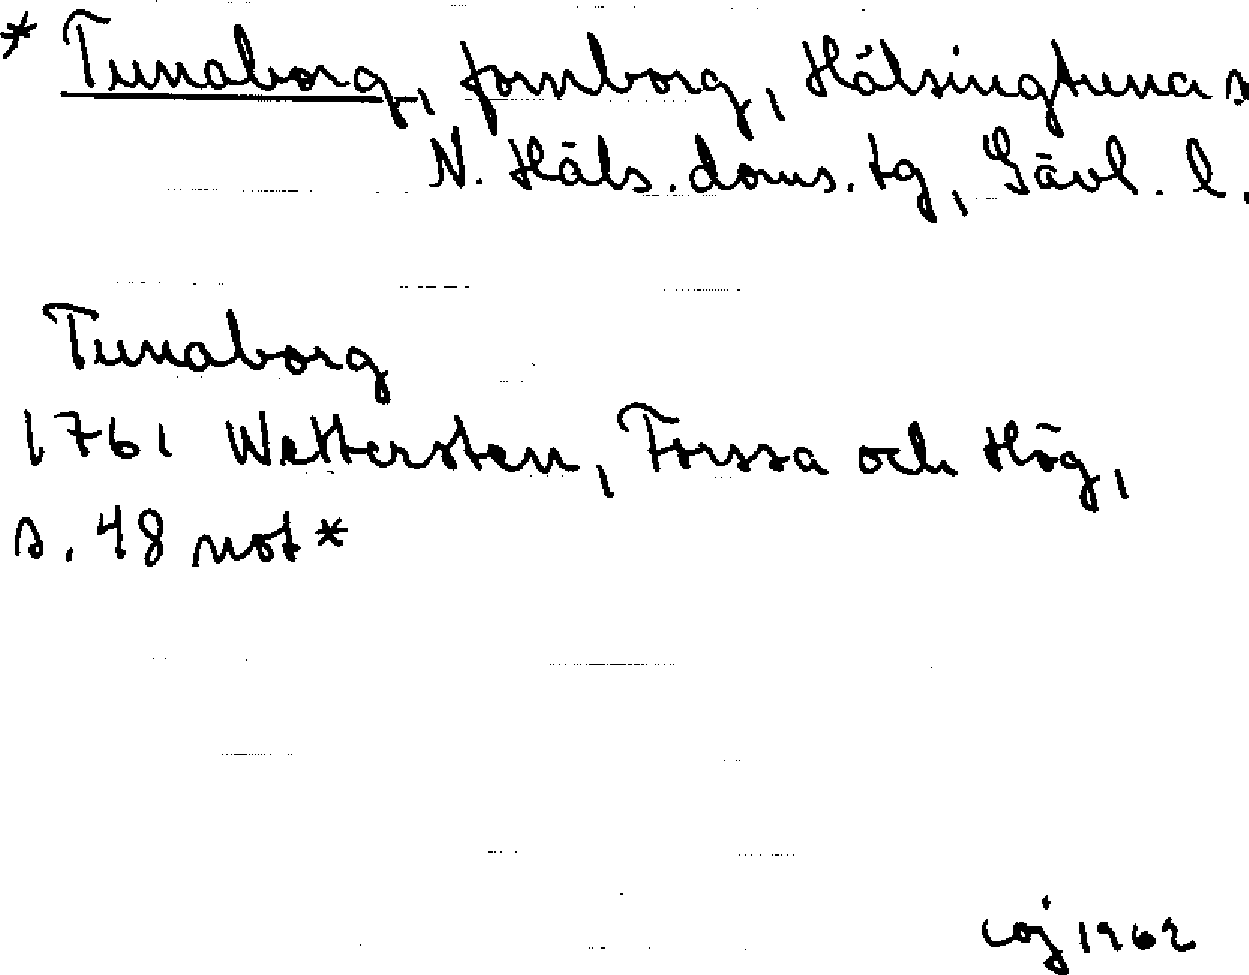 * Tunaborg, fornborg, Hälsingtuna s
N. Häls. doms. tg, Gävl. l.
Tunaborg
1761 Wettersten, Forssa och Hög,
s. 48 not*
coj 1962